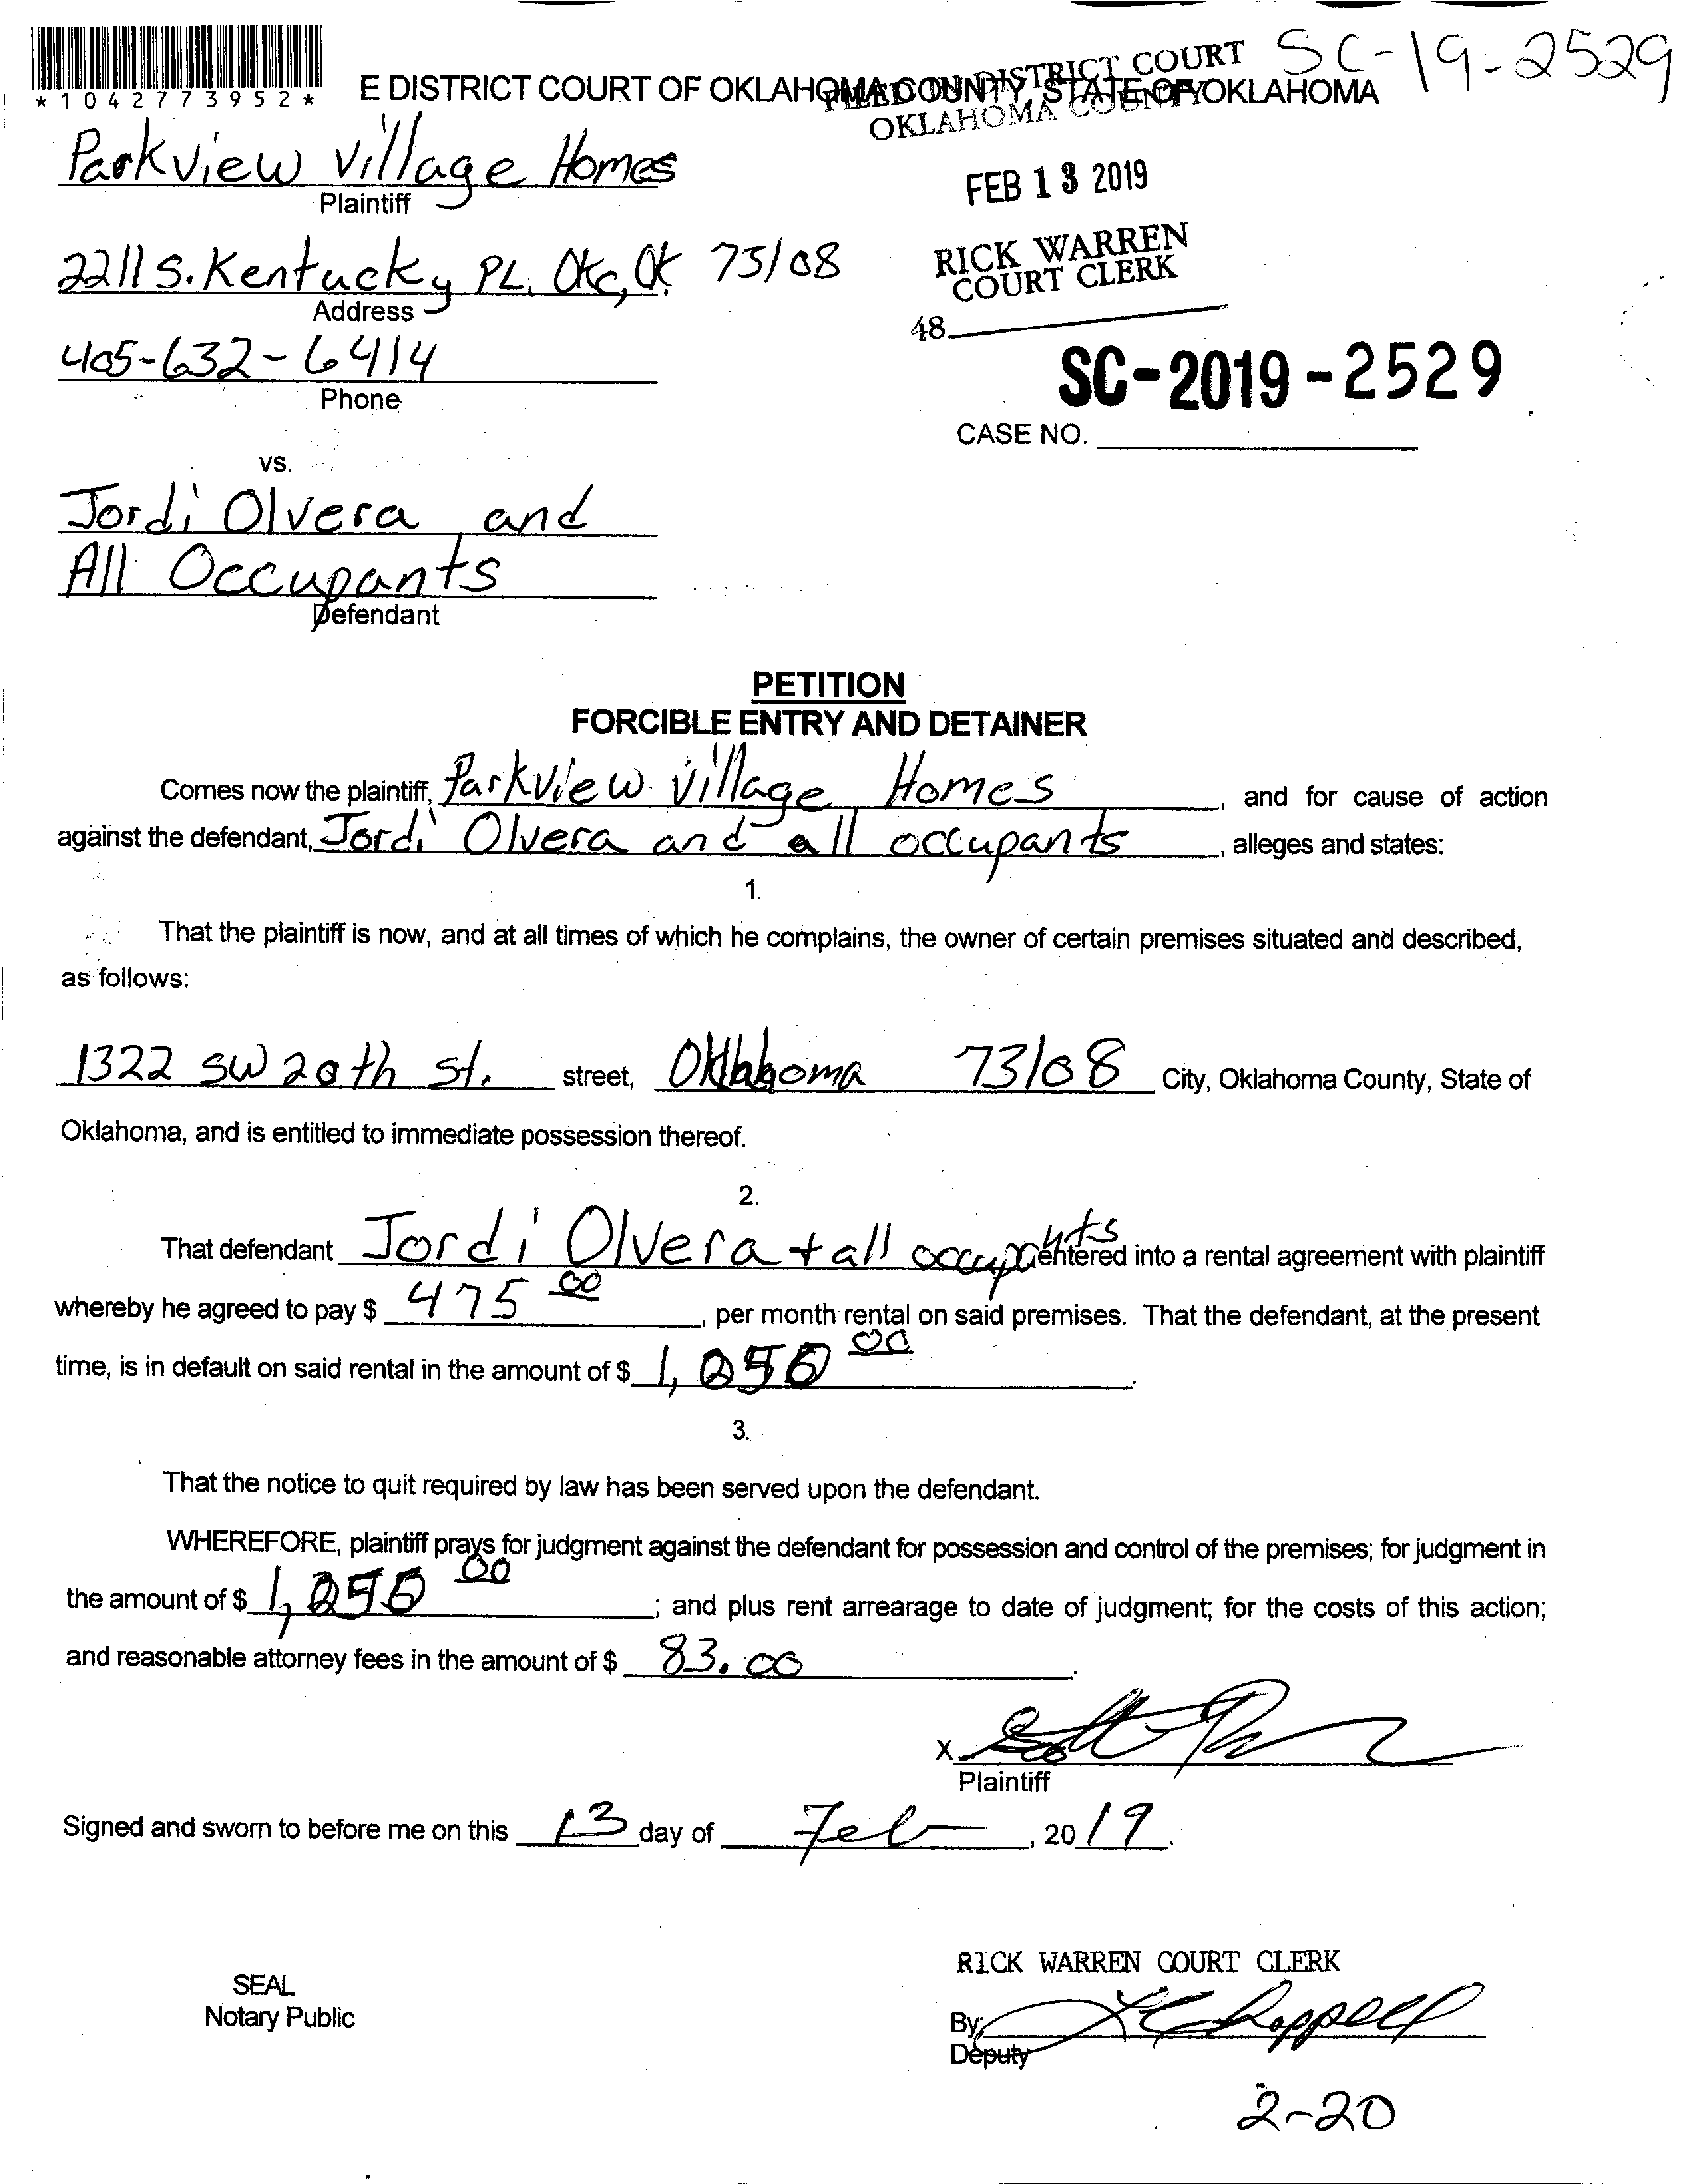 SC-19-2529
*1042773952*
E DISTRICT COURT OF OKLAHOMA COUNTY, STATE OF OKLAHOMA
FILED IN DISTRICT COURT
OKLAHOMA COUNTY
Parkview Village Homes
Plaintiff
FEB 13 2019
2211 S. Kentucky PL. Okc, Ok 73108
Address
RICK WARREN
COURT CLERK
48
405-632-6414
Phone
SC-2019-2529
CASE NO.
vs.
Jordi Olvera and
All Occupants
Defendant
PETITION
FORCIBLE ENTRY AND DETAINER
Comes now the plaintiff, Parkview Village Homes, and for cause of action
against the defendant, Jordi Olvera and all occupants, alleges and states:
1.
That the plaintiff is now, and at all times of which he complains, the owner of certain premises situated and described,
as follows:
1322 SW 20th st. street, Oklahoma 73108 City, Oklahoma County, State of
Oklahoma, and is entitled to immediate possession thereof.
2.
That defendant Jordi Olvera + all occupants entered into a rental agreement with plaintiff
whereby he agreed to pay $ 475 00, per month rental on said premises. That the defendant, at the present
time, is in default on said rental in the amount of $ 00.
3.
That the notice to quit required by law has been served upon the defendant.
WHEREFORE, plaintiff prays for judgment against the defendant for possession and control of the premises; for judgment in
the amount of $ 00; and plus rent arrearage to date of judgment; for the costs of this action;
and reasonable attorney fees in the amount of $ 83.00.
X
Plaintiff
Signed and sworn to before me on this 13 day of Feb, 2019.
RICK WARREN COURT CLERK
SEAL
Notary Public
By
Deputy
2-20